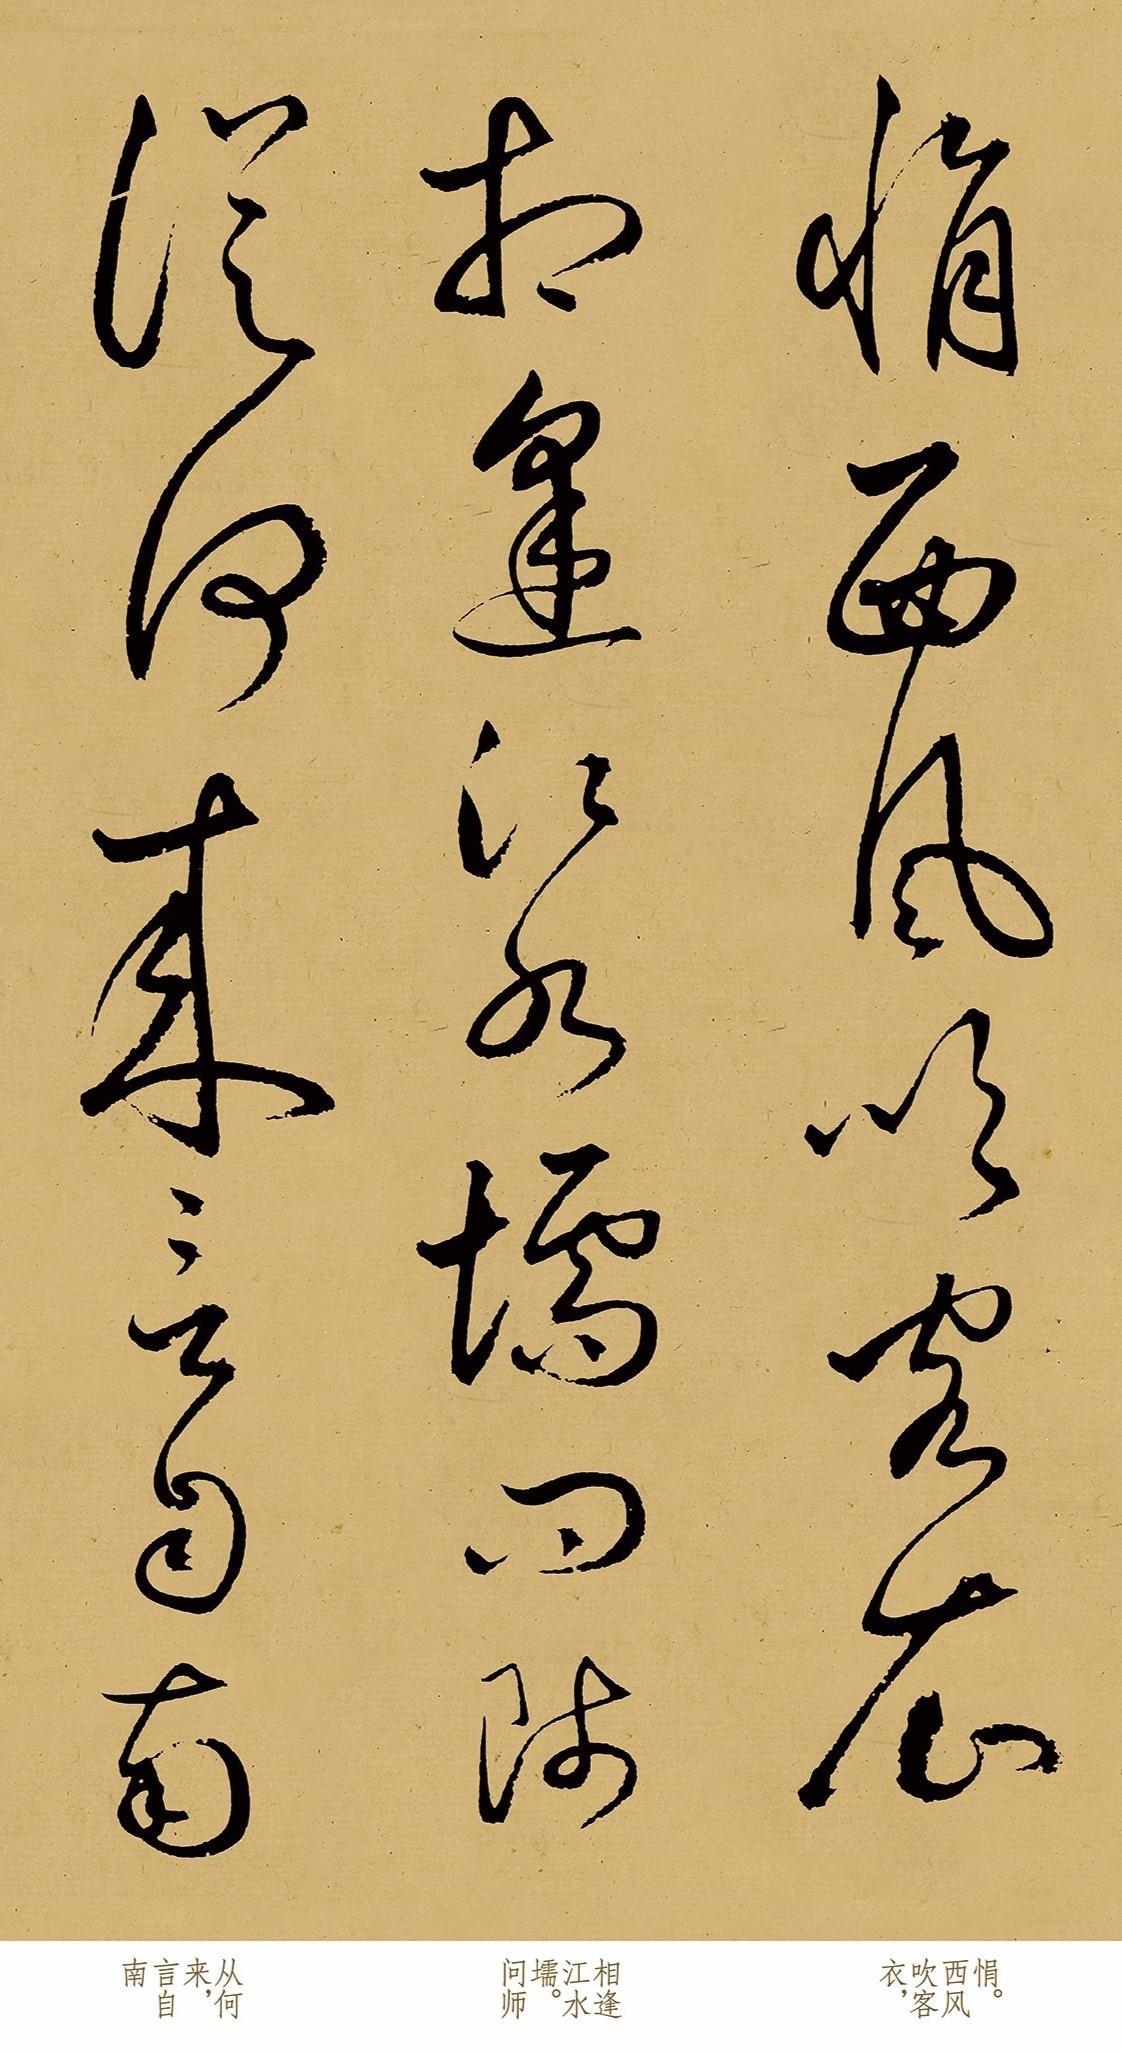 悁西风吹客衣
相逢江水壖问师
从何来言自南
悁。
西风
吹客
衣，
相逢
江水
壖。
问师
从何
来，
言自
南